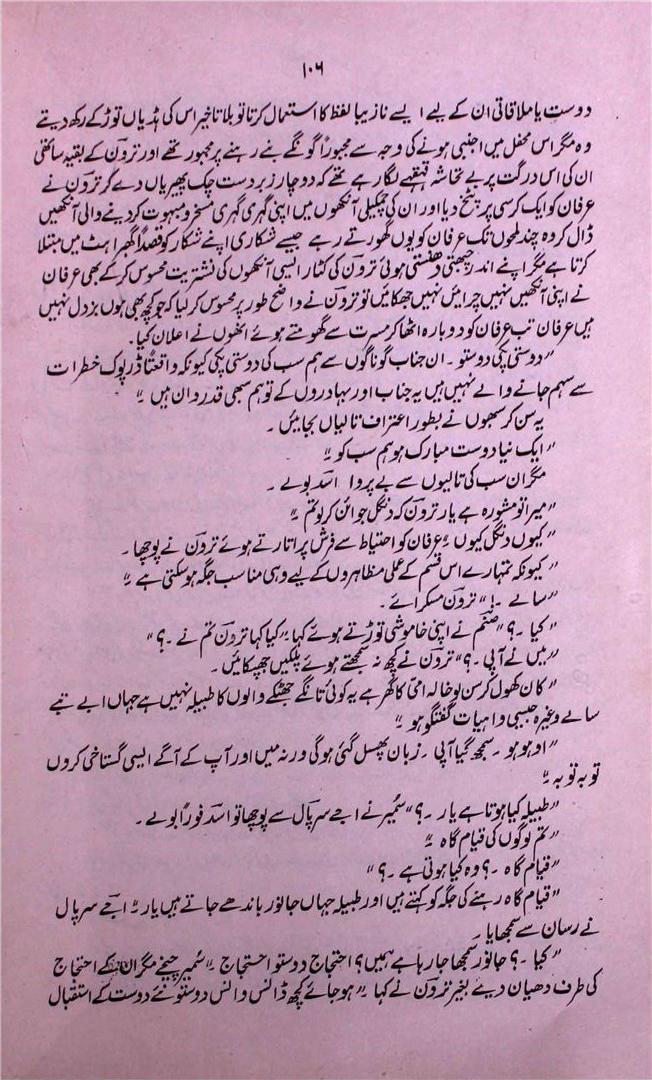 ۱۰۶
دوست یا ملاقاتی ان کے لیے ایسے نازیبا لفظ کا استعمال کرتا تو بلا تاخیر اس کی ہڈیاں توڑ کے رکھ دیتے
وہ مگر اس محفل میں اجنبی ہونے کی وجہ سے مجبوراً گونگے بنے رہنے پر مجبور تھے اور ترون کے بقیہ ساتھی
ان کی اس درگت پر بے تحاشہ قہقہے لگا رہے تھے کہ دو چار زبردست چک پھیریاں دے گر ترون نے
عرفان کو ایک کرسی پر پٹخ دیا اور ان کی چمکیلی آنکھوں میں اپنی گہری گہری مسخر و مبہوت کر دینے والی آنکھیں
ڈال کر وہ چند لمحوں تک عرفان کو یوں گھورتے رہے جیسے شکاری اپنے شکار کو قصداً گھبراہٹ میں مبتلا
کرتا ہے مگر اپنے اندر چبھتی دھنستی ہوئی ترون کی کٹار ایسی آنکھوں کی نشتریت محسوس کر کے بھی عرفان
نے اپنی آنکھیں نہیں چرائیں نہیں جھکائیں تو ترون نے واضح طور پر محسوس کر لیا کہ جو کچھ بھی ہوں بزدل نہیں
ہیں عرفان تب عرفان کو دوبارہ اٹھا کر مسرت سے گھومتے ہوئے انھوں نے اعلان کیا۔
”دوستی پکی دوستو۔ ان جناب گوناگوں سے ہم سب کی دوستی پکی کیونکہ واقعتاً ڈرپوک خطرات
سے سہم جانے والے نہیں ہیں یہ جناب اور بہادروں کے تو ہم سبھی قدردان ہیں۔“
یہ سن کر سبھوں نے بطور اعتراف تالیاں بجائیں۔
”ایک نیا دوست مبارک ہو ہم سب کو۔“
مگر ان سب کی تالیوں سے بے پروا اسد بولے۔
”میرا تو مشورہ ہے یار ترون کہ دنگل جوائن کر لو تم۔“
”کیوں دنگل کیوں؟“ عرفان کو احتیاط سے فرش پر اتارتے ہوئے ترون نے پوچھا۔
”کیونکہ تمہارے اس قسم کے عملی مظاہروں کے لیے وہی مناسب جگہ ہو سکتی ہے۔“
”سالے۔!“ ترون مسکرائے۔
”کیا۔؟“ صنم نے اپنی خاموشی توڑتے ہوئے کہا۔ ”کیا کہا ترون تم نے۔؟“
”میں نے آپی۔؟“ ترون نے کچھ نہ سمجھتے ہوئے پلکیں جھپکائیں۔
”کان کھول کر سن لو خالہ امی کا گھر ہے یہ کوئی تانگے جھٹکے والوں کا طبیلہ نہیں ہے جہاں ابے تبے
سالے وغیرہ جیسی واہیات گفتگو ہو۔“
”اوہو ہو۔ سمجھ گیا آپی۔ زبان پھسل گئی ہوگی ورنہ میں اور آپ کے آگے ایسی گستاخی کروں
توبہ توبہ۔“
”طبیلہ کیا ہوتا ہے یار۔؟“ سمیر نے اجے سرپال سے پوچھا تو اسد فوراً بولے۔
”تم لوگوں کی قیام گاہ۔“
”قیام گاہ۔؟ وہ کیا ہوتی ہے۔؟“
”قیام گاہ رہنے کی جگہ کو کہتے ہیں اور طبیلہ جہاں جانور باندھے جاتے ہیں یار۔“ اجے سرپال
نے رسان سے سمجھایا۔
”کیا۔؟ جانور سمجھا جا رہا ہے ہمیں؟ احتجاج دوستو احتجاج۔“ سمیر چیخے مگر ان کے احتجاج
کی طرف دھیان دیے بغیر ترون نے کہا۔ ”ہو جائے کچھ ڈانس وانس دوستو نئے دوست کے استقبال